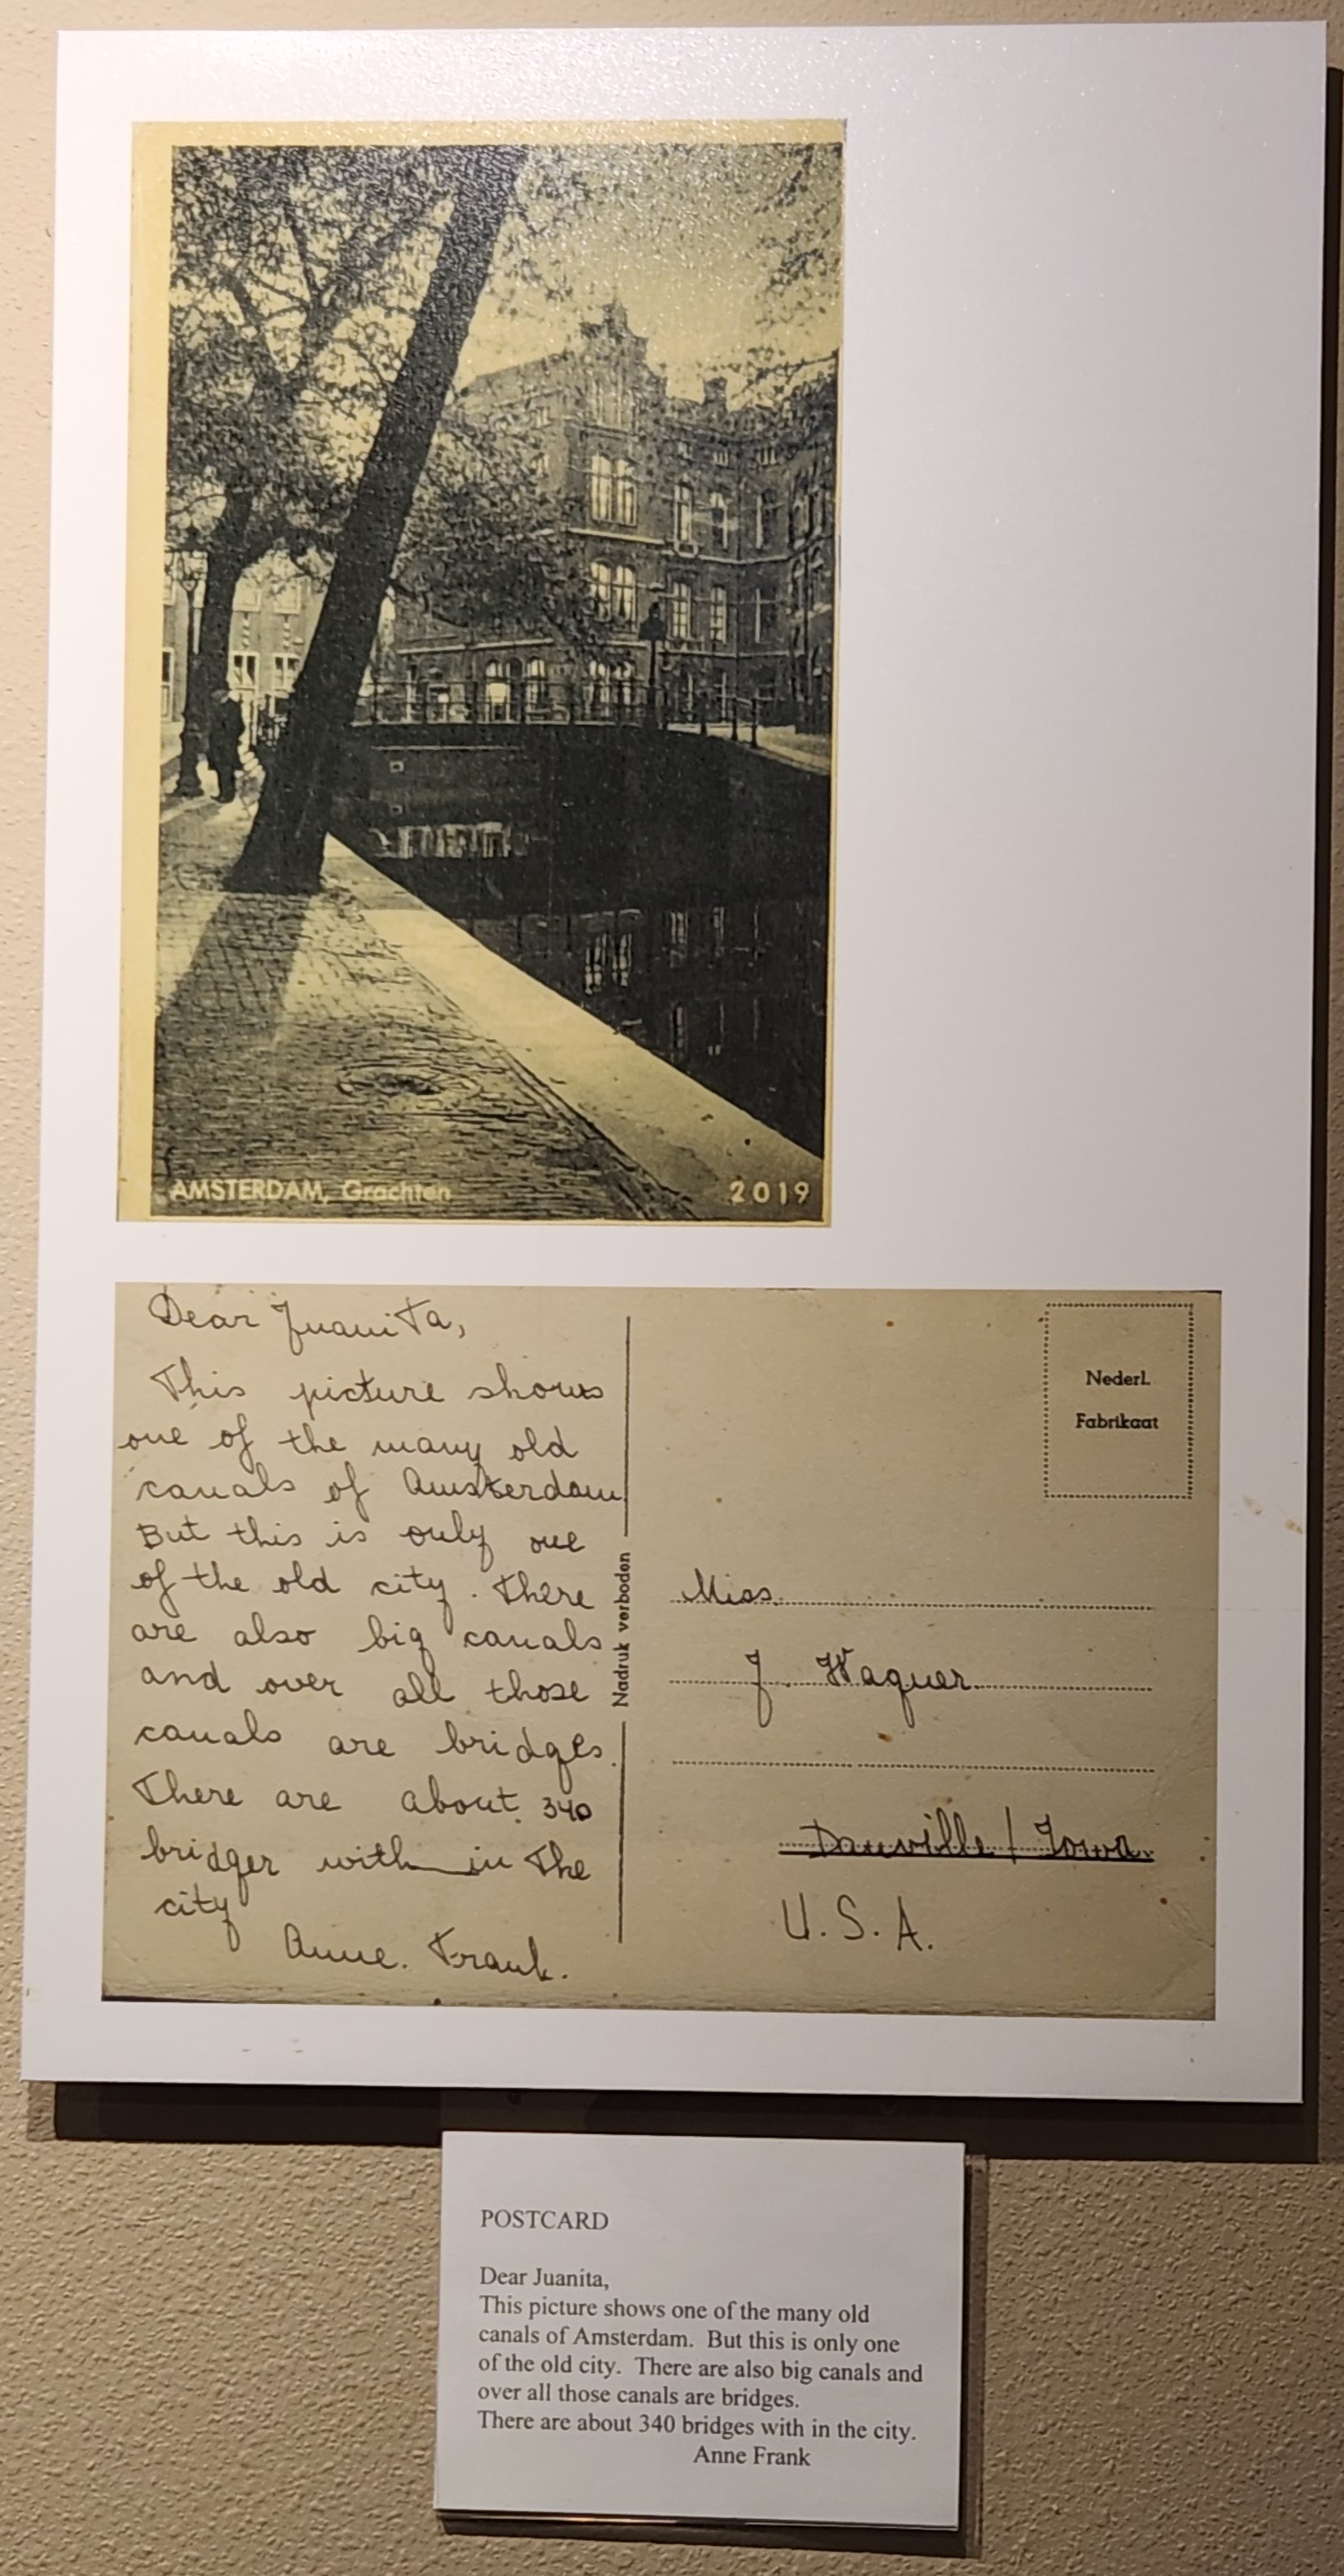 AMSTERDAM, Grachten 2019
Dear Juanita,
This picture shows
one of the many old
canals of Amsterdam
But this is only one
of the old city. There
are also big canals
and over all those
canals are bridges.
There are about 340
bridger with in the
city
Anne. Frank.
Nadruk verboden
Nederl.
Fabrikaat
Miss.
J. Wagner
Danville / Iowa.
U.S.A.
POSTCARD
Dear Juanita,
This picture shows one of the many old
canals of Amsterdam. But this is only one
of the old city. There are also big canals and
over all those canals are bridges.
There are about 340 bridges with in the city.
Anne Frank